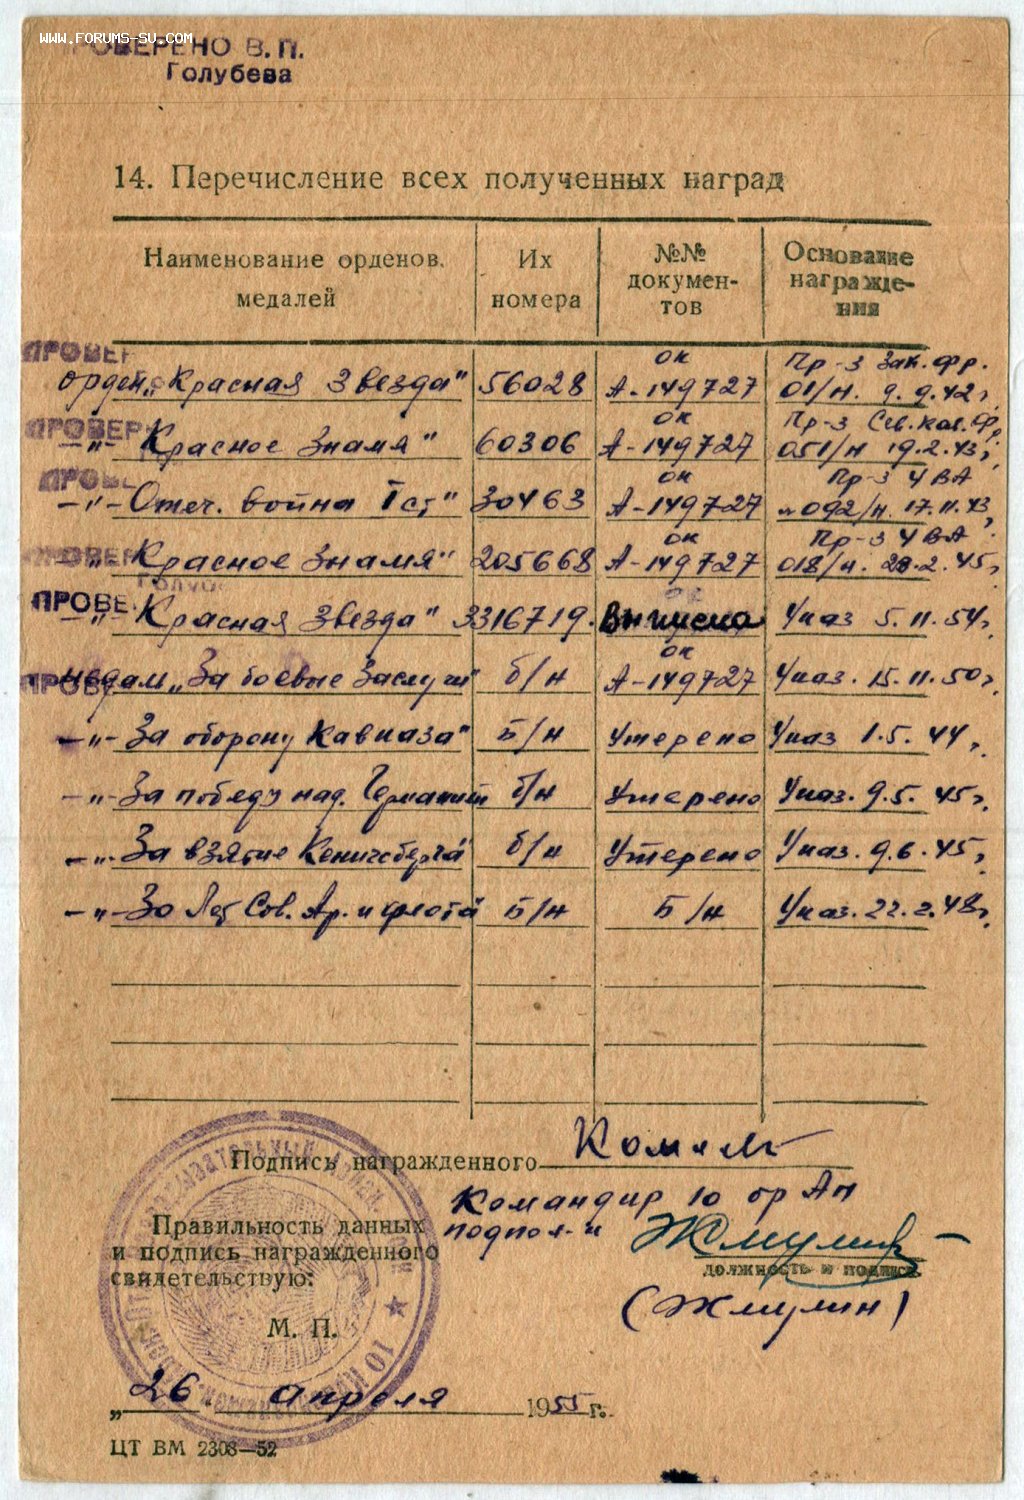 www.forums-su.com
ПРОВЕРЕНО В. П.
Голубева
14. Перечисление всех полученных наград
Наименование орденов, медалей
Их номера
№№ докумен-тов
Основание награжде-ния
ПРОВЕР
орден „Красная Звезда" 56028 ок А-149727 Пр-з Зак. фр. 01/н. 9.9.42г.
ПРОВЕР
-"- Красное Знамя" 60306 ок А-149727 Пр-з Сев. кав. фр. 051/н 19.2.43г.
ПРОВЕ
-"- Отеч. война I ст" 30463 ок А-149727 Пр-з 4 ВА 092/н. 17.11.43г.
ПРОВЕР
-"- Красное Знамя" 205668 ок А-149727 Пр-з 4 ВА 018/н. 28.2.45г.
ПРОВЕ
-"- Красная Звезда" 3316719. Выписка Указ 5.11.54г.
ПРОВЕ
медаль „За боевые Заслуги" б/н ок А-149727 Указ. 15.11.50г.
-"- За оборону Кавказа" Б/н Утерено Указ 1.5.44г.
-"- За победу над. Германией б/н Утерено Указ. 9.5.45г.
-"- За взятие Кенигсберга" б/н Утерено Указ. 9.6.45г.
-"- 30 лет Сов. Ар. и флота" Б/н Б/н Указ. 22.2.48г.
Подпись награжденного
Командир 10 ор Ап
подпол-к
Правильность данных
и подпись награжденного
свидетельствую:
должность и подпись
(Жмулин)
М. П.
„26 апреля 1955 г.
ЦТ ВМ 2308—52